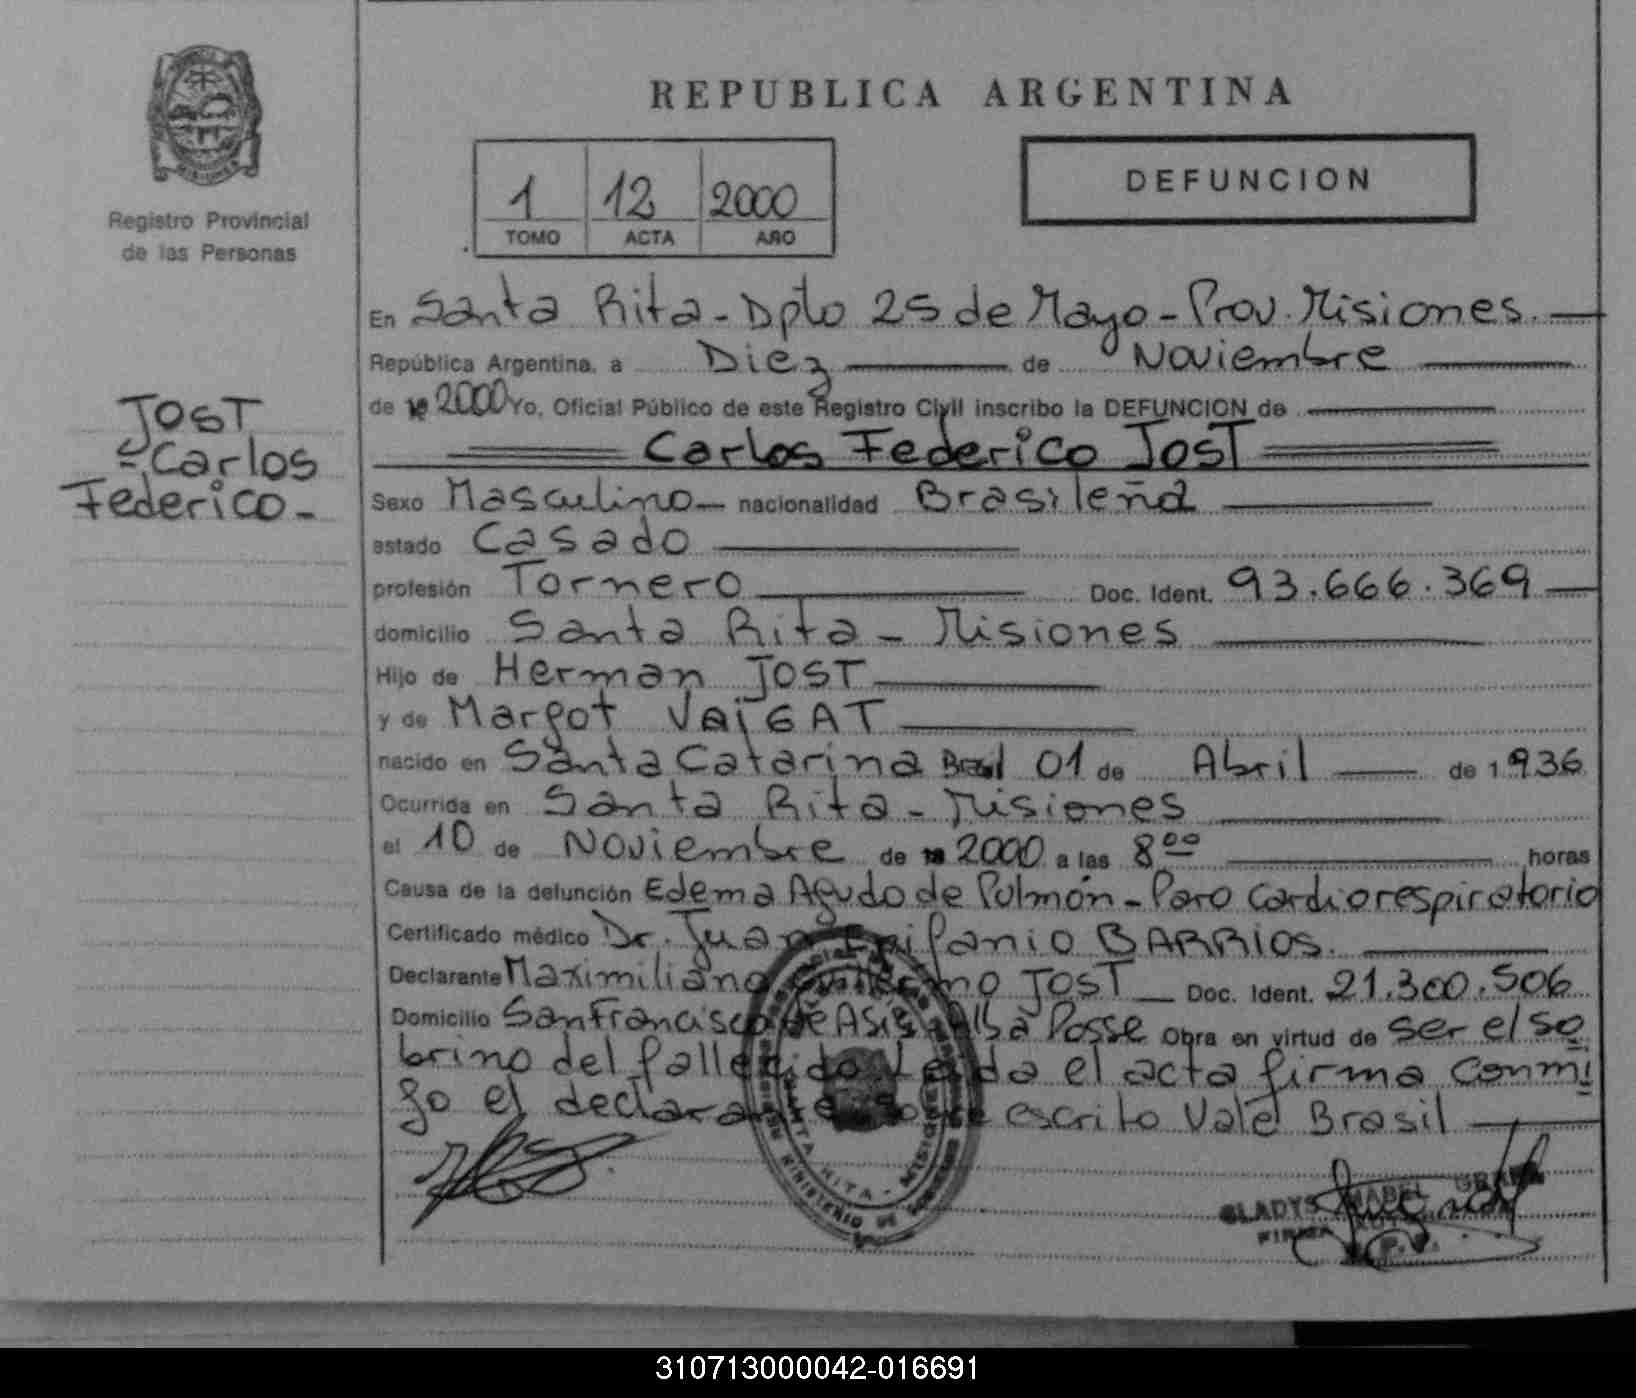 Registro Provincial
de las Personas
REPUBLICA ARGENTINA
1 12 2000
TOMO ACTA AÑO
DEFUNCION
JOST
Carlos
Federico-
En Santa Rita - Dpto 25 de Mayo - Prov. Misiones.
República Argentina, a Diez de Noviembre
de 2000 Yo, Oficial Público de este Registro Civil inscribo la DEFUNCION de
Carlos Federico JOST
Sexo Masculino nacionalidad Brasileña
estado Casado
profesión Tornero Doc. Ident. 93.666.369
domicilio Santa Rita - Misiones
Hijo de Herman JOST
y de Margot VeiGAT
nacido en Santa Catarina Brasil 01 de Abril de 1936
Ocurrida en Santa Rita - Misiones
el 10 de Noviembre de 2000 a las 8 00 horas
Causa de la defunción Edema Agudo de Pulmón - Paro Cardiorespiratorio
Certificado médico Dr. Juan Epifanio BARRIOS.
Declarante Maximiliano JOST Doc. Ident. 21.300.506
Domicilio San Francisco de Asis Alba Posse Obra en virtud de ser el so
brino del fallecido Leida el acta firma Conmi
go el declarante sobre escrito Vale Brasil
GLADYS MABEL
FIRMA
SANTA RITA - MISIONES
MINISTERIO DE
310713000042-016691